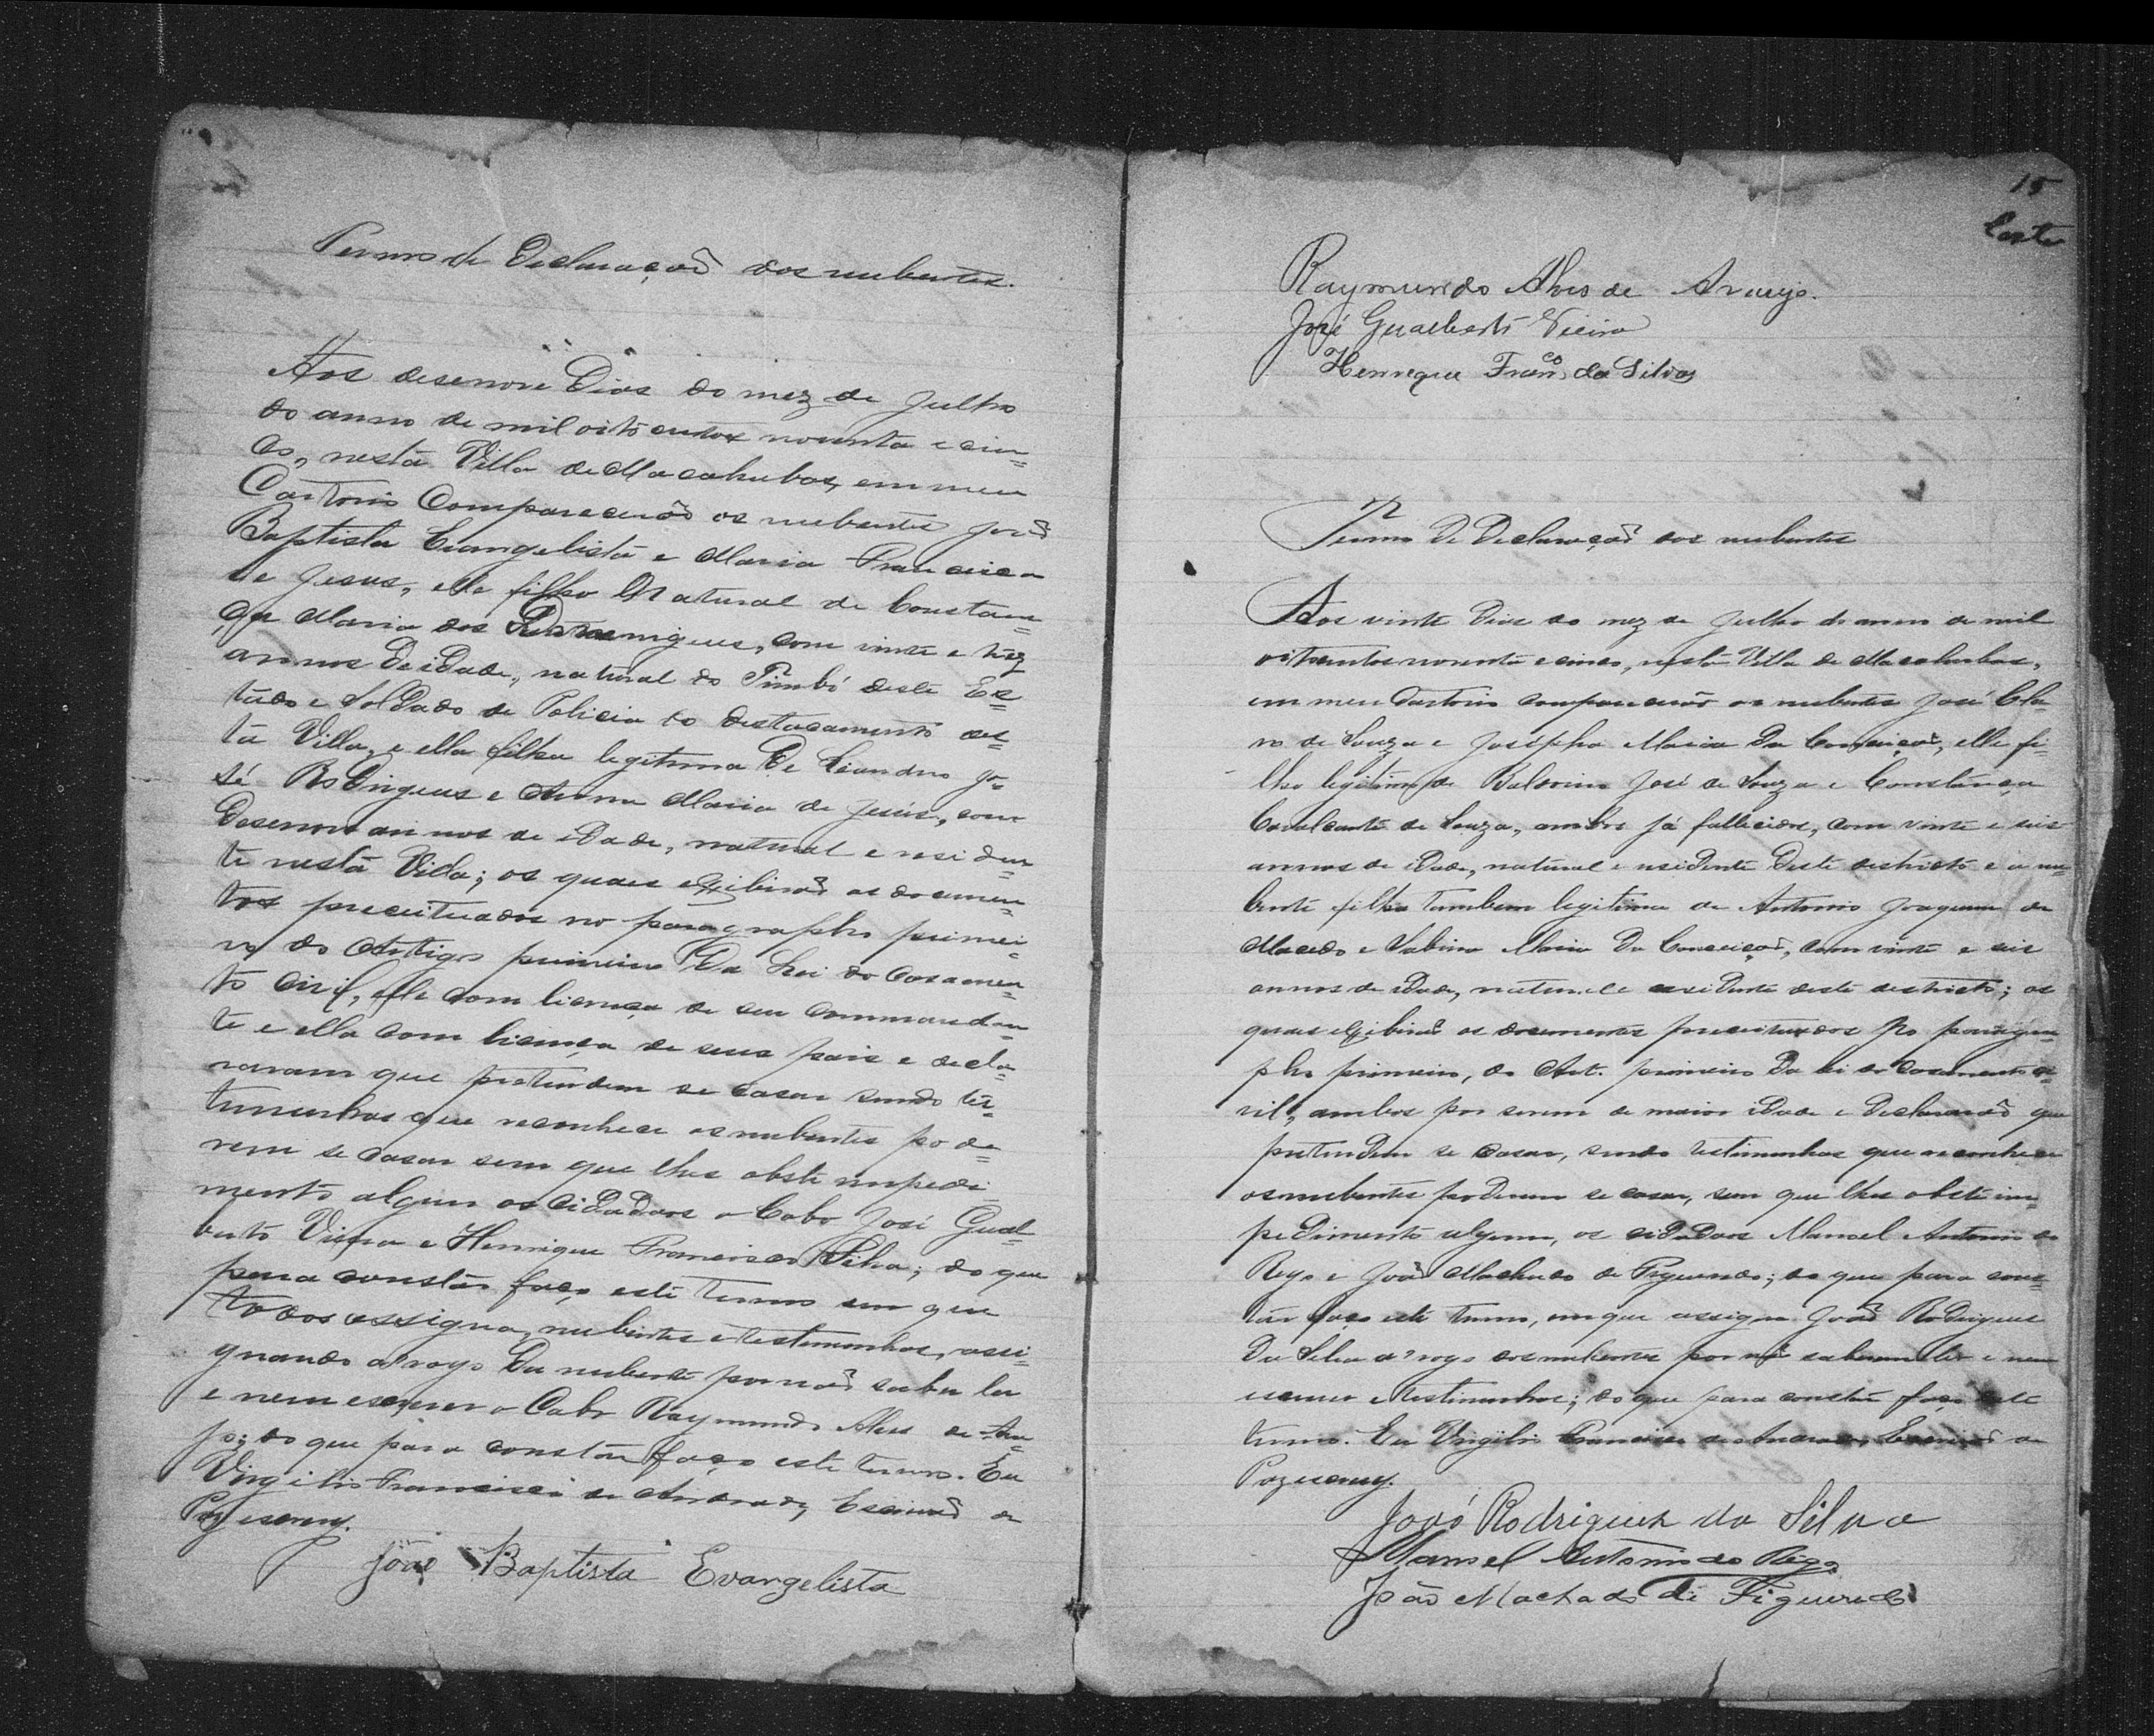 Termo de Declaração dos nubentes.
Aos desenove Dias do mez de Julho
do anno de mil oito centos noventa e cin=
co, nesta Villa de Macahubas, em meu
Cartorio Comparecerão os nubentes João
Baptista Evangelista e Maria Francisca
de Jesus, elle filho Natural de Constan=
ça Maria dos com vinte e trez
annos De idade, natural do Timbó deste Es=
tado e Soldado de Policia do destacamento des=
ta Villa, e ella filha legitima De Leandro Jo=
sé Rodrigues e Anna Maria de Jesus, com
Desenove annos de idade, natural e residen=
te nesta Villa; os quaes exibirão os documen=
tos preceituados no paragrapho primei=
ro do Artigo primeiro Da Lei do Casamen=
to Civil, elle com licença de seu commandan=
te e ella com licença de seus pais e decla=
raram que pretendem se casar sendo tes=
temunhas que reconhece os nubentes pode=
rem se casar sem que lhes obste impedi=
mento algum os cidadãos o Cabo José Gual=
berto Vieira e Henrique Francisco Silva; do que
para constar faço este termo em que
todos assigna, nubentes e testemunhas, assi=
gnando a rogo Da nubente por não saber ler
e nem escrever o Cabo Raymundo Alves de Arau=
jo; do que para constar faço este termo. Eu
Virgilio Francisco de Andrade, Escrivão de
Paz escrevy.
João Baptista Evangelista
15
Raymundo Alves de Araujo.
José Gualberto Vieira
Henreque Franco da Silva
Termo De Declaração dos nubentes
Aos vinte Dias do mez de Julho do anno de mil
oitocentos noventa e cinco, nesta Villa de Macahubas,
em meu Cartorio comparecerão os nubentes José Cla=
ro de Souza e Josépha Maria Da Conceição, elle fi=
lho legitimo de Balduino José de Souza e Constança
Cavalcante de Souza, ambos já fallecidos, com vinte e seis
annos de idade, natural e residente Deste destricto e a nu=
bente filha tambem legitima de Antonio Joaquim de
Macedo e Sabina Maria Da Conceição, com vinte e seis
annos de idade, natural e residente deste destricto; os
quaes exibirão os documentos preceituados No paragra=
pho primeiro, do Art. primeiro Da Lei do casamento ci=
vil, ambos por serem de maior idade e Declararão que
pretendem se casar, sendo testemunhas que reconhece
os nubentes poderem se casar, sem que lhes obste im=
pedimento algum, os cidadãos Manoel Antonio do
Rego e João Machado de Figueredo; do que para cons=
tar faço este termo, em que assigna João Rodrigues
Da Silva a rogo dos nubentes por não saberem ler e nem
escrever e testemunhas; do que para constar faço este
termo. Eu Virgilio Francisco de Andrade, Escrivão de
Paz escrevy.
João Rodrigues da Silva
Manoel Antonio do Rego
João Machado de Figueredo